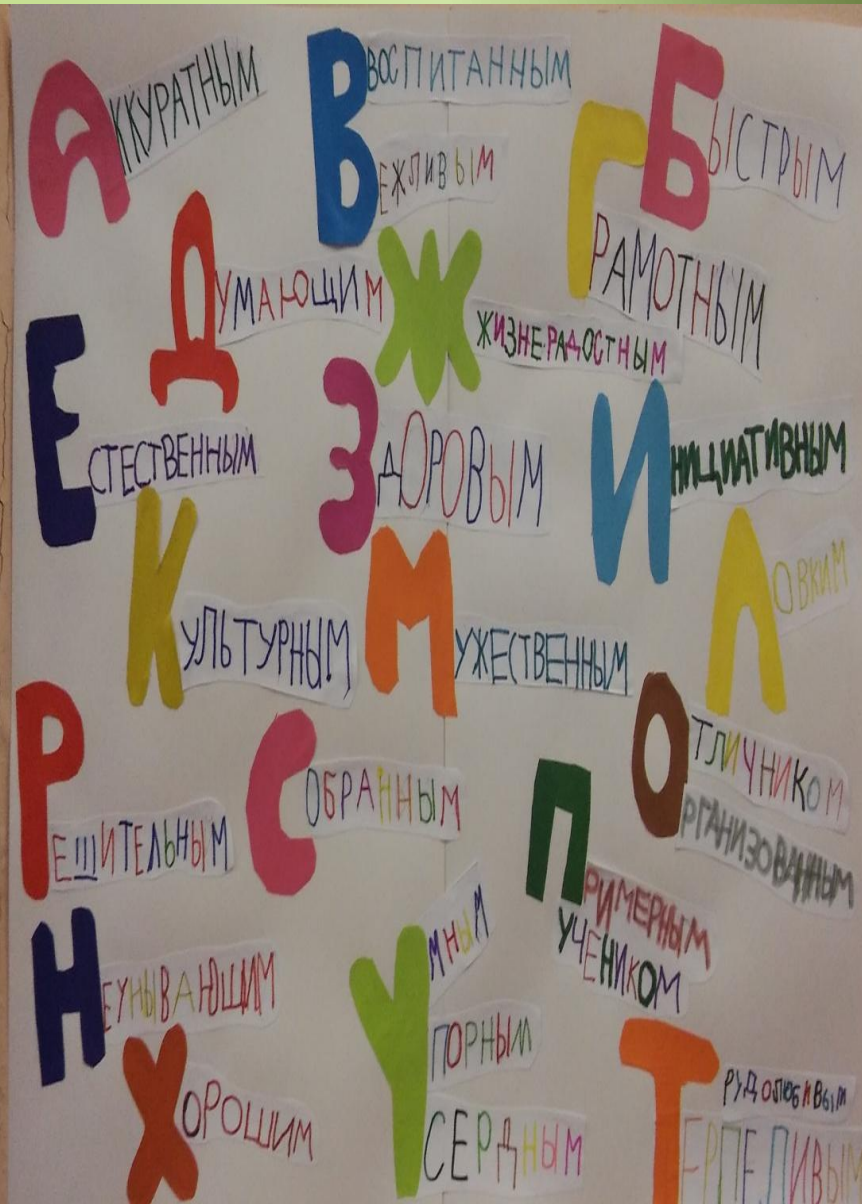 АККУРАТНЫМ
ВОСПИТАННЫМ
ВЕЖЛИВЫМ
БЫСТРЫМ
ГРАМОТНЫМ
ДУМАЮЩИМ
Ж
ЖИЗНЕ-РАДОСТНЫМ
ЕСТЕСТВЕННЫМ
ЗДОРОВЫМ
ИНИЦИАТИВНЫМ
КУЛЬТУРНЫМ
МУЖЕСТВЕННЫМ
ЛОВКИМ
РЕШИТЕЛЬНЫМ
СОБРАННЫМ
ОТЛИЧНИКОМ
ОРГАНИЗОВАННЫМ
ПРИМЕРНЫМ
УЧЕНИКОМ
НЕУНЫВАЮЩИМ
УМНЫМ
УПОРНЫМ
УСЕРДНЫМ
ХОРОШИМ
ТРУДОЛЮБИВЫМ
ТЕРПЕЛИВЫМ